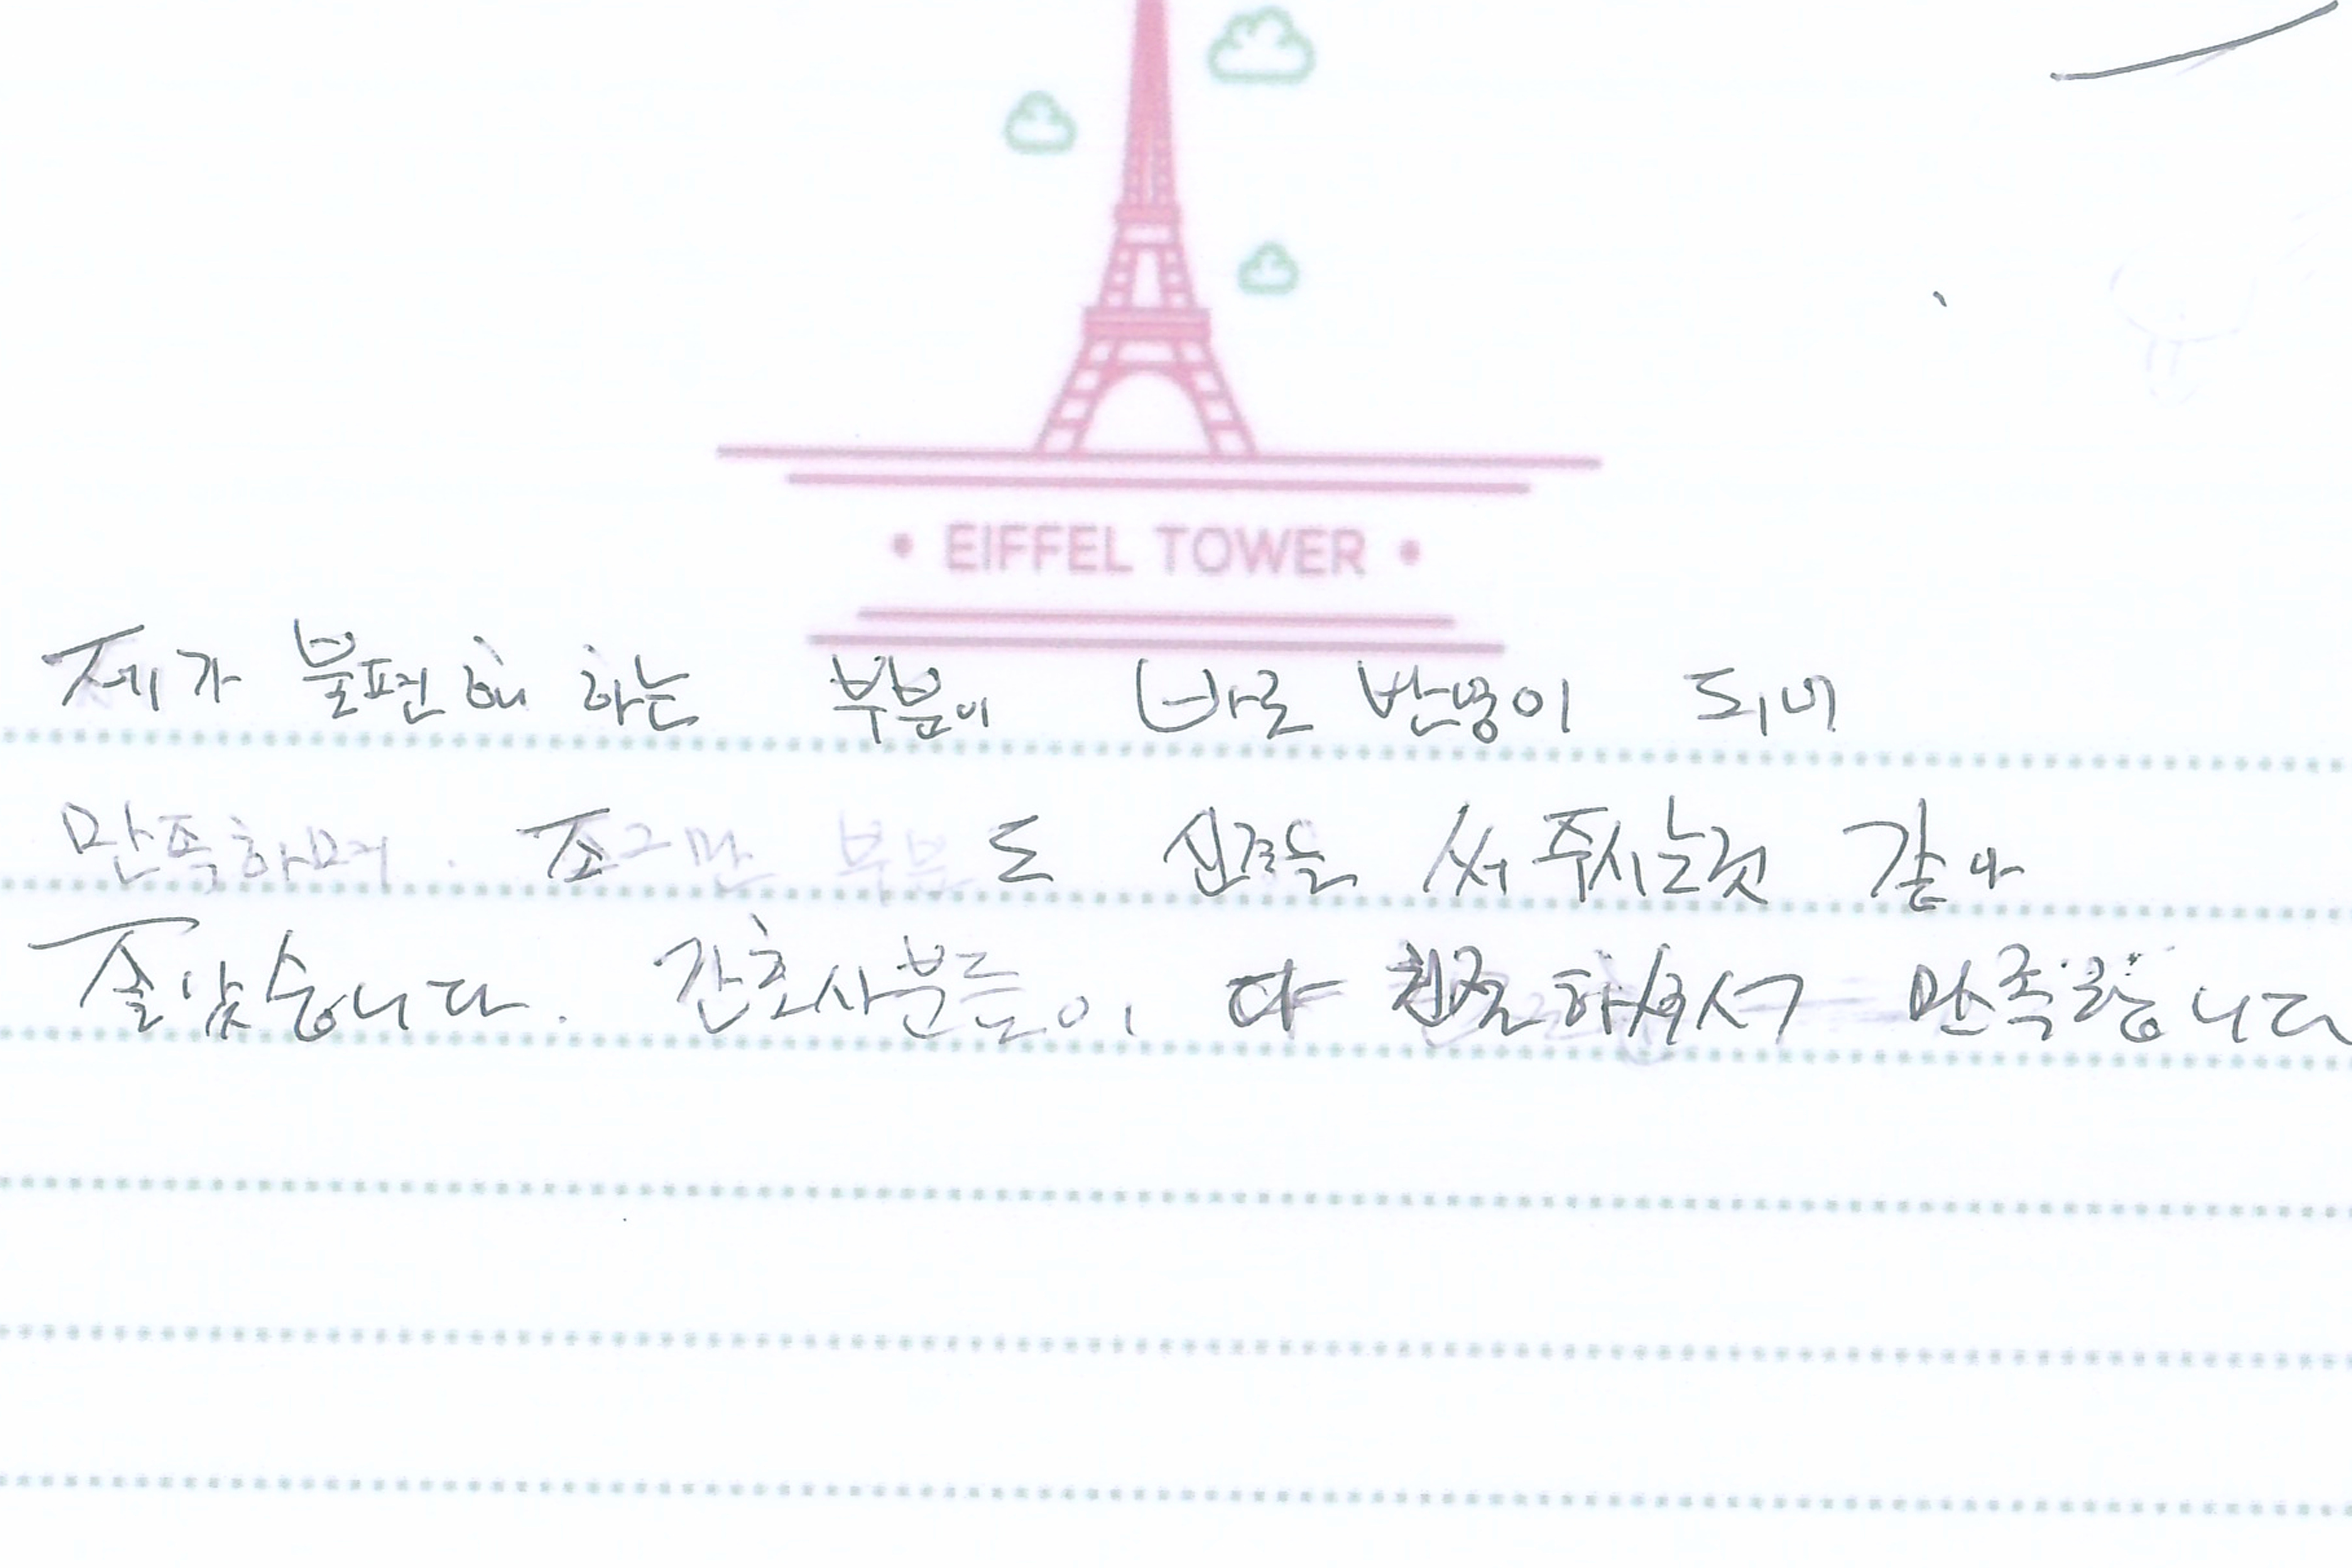 • EIFFEL TOWER •
제가 불편해 하는 부분이 바로 반영이 되며
만족하며. 조그만 부분도 신경을 써 주시는것 같아
좋았습니다. 간호사분들이 다 친절하셔서 만족합니다